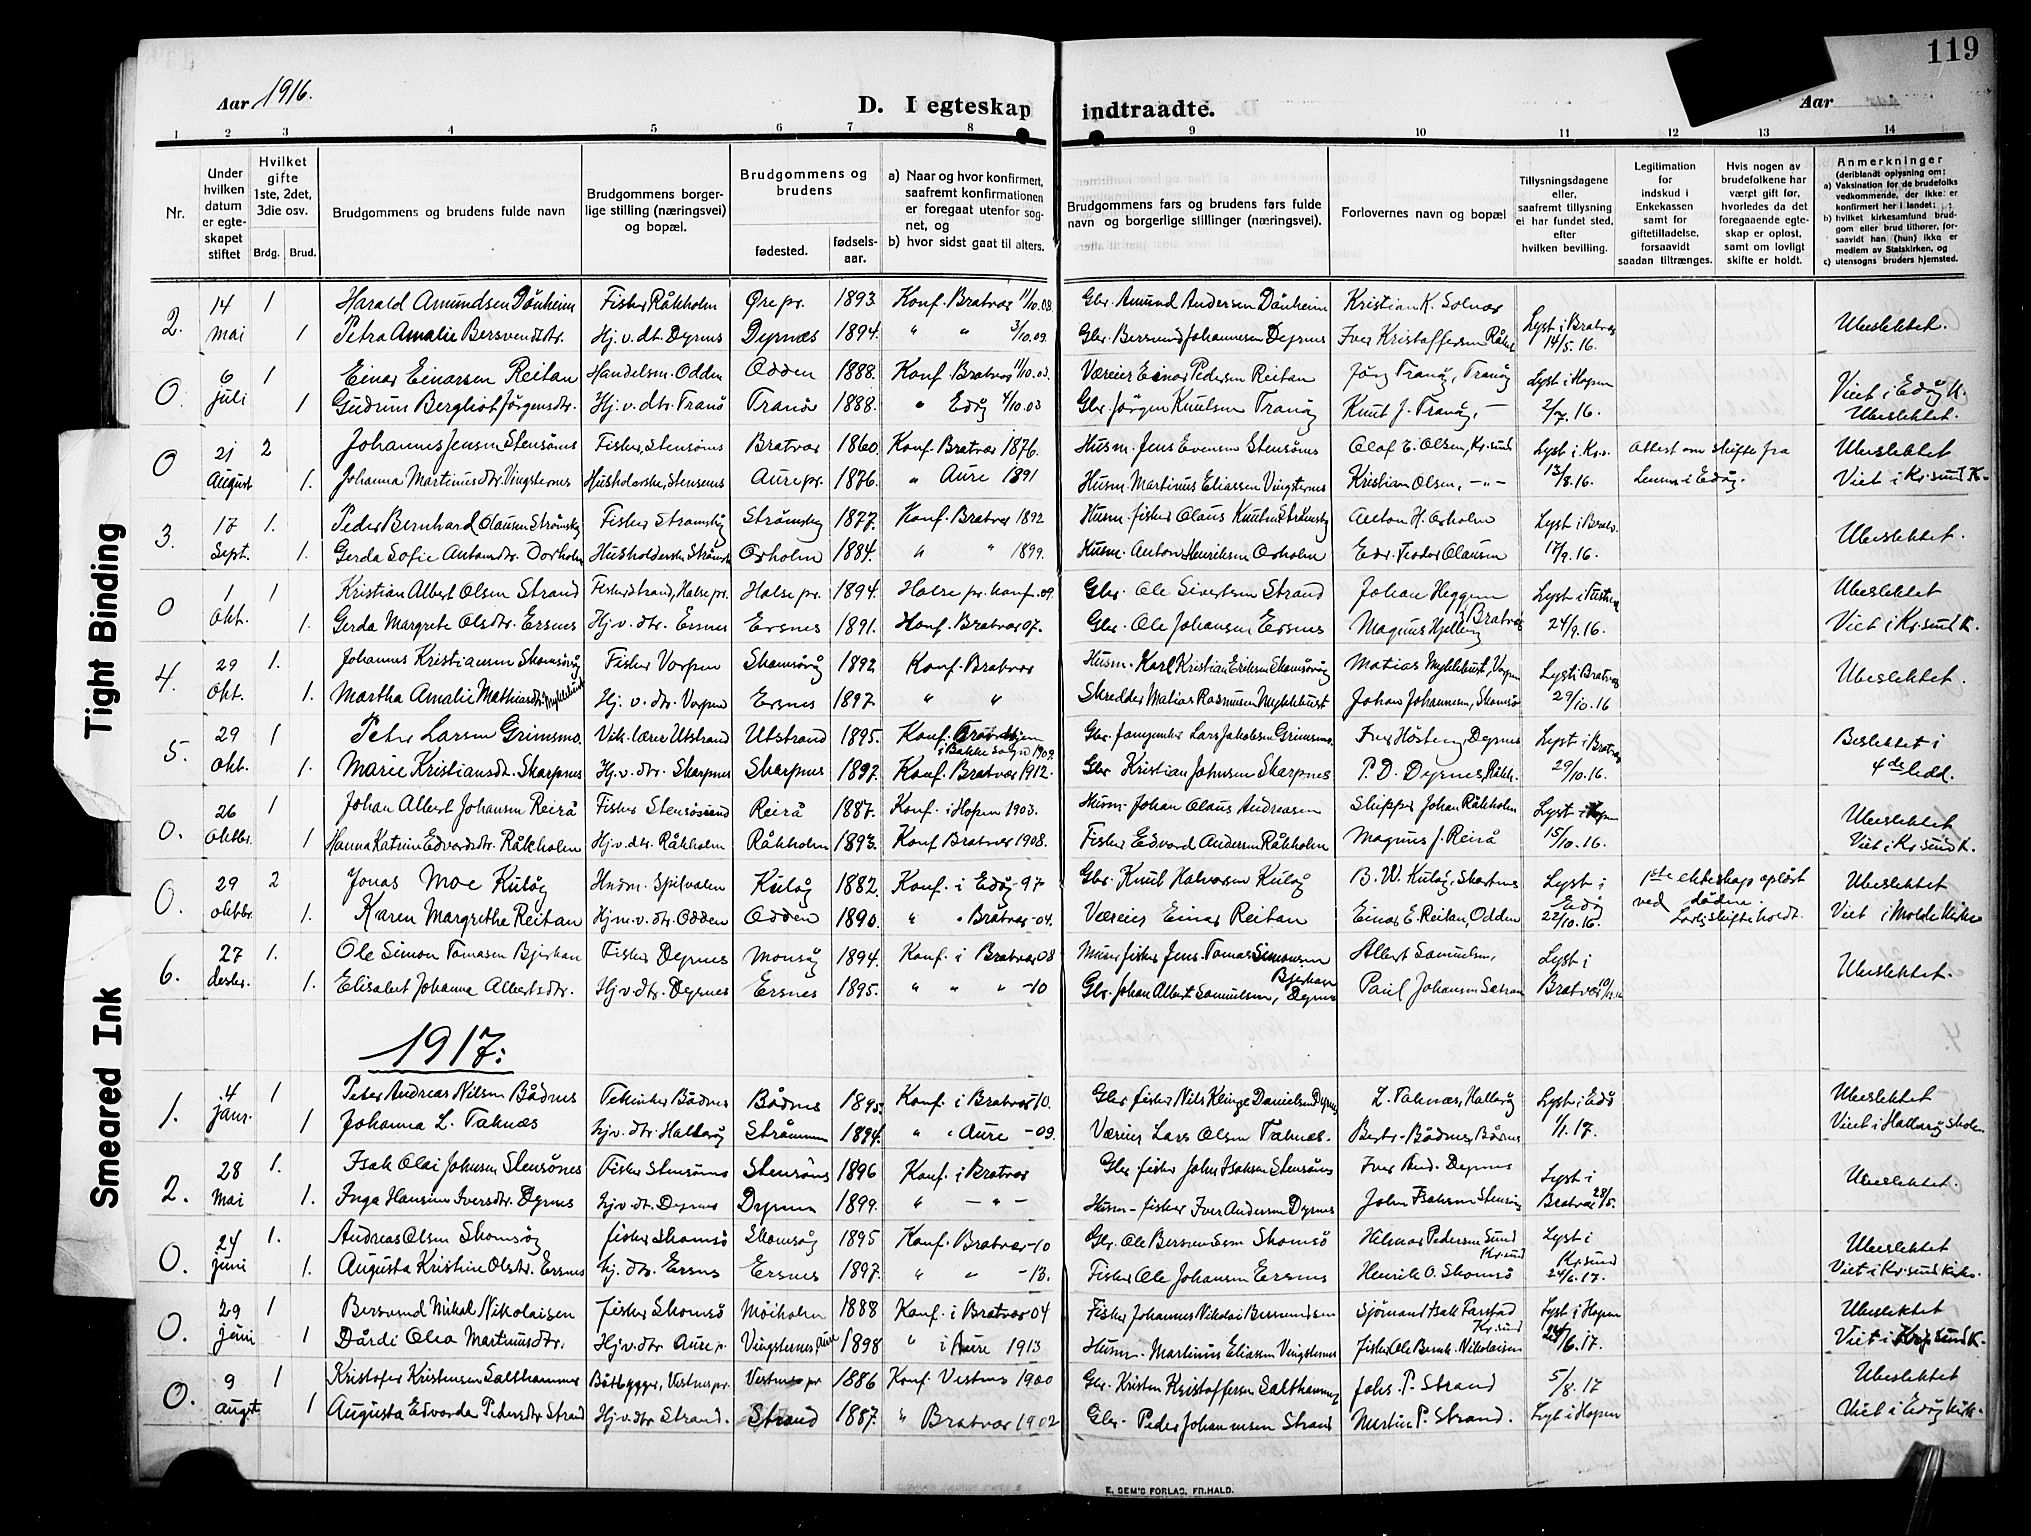 119
Aar 1916.
D. I egteskap indtraadte.
Aar
1 2 3 4 5 6 7 8 9 10 11 12 13 14
Nr.
Under hvilken datum er egteskapet stiftet
Hvilket gifte 1ste, 2det, 3die osv.
Brdg. Brud.
Brudgommens og brudens fulde navn
Brudgommens borgerlige stilling (næringsvei) og bopæl.
Brudgommens og brudens
fødested. fødselsaar.
a) Naar og hvor konfirmert, saafremt konfirmationen er foregaat utenfor sognet, og
b) hvor sidst gaat til alters.
Brudgommens fars og brudens fars fulde navn og borgerlige stillinger (næringsvei).
Forlovernes navn og bopæl
Tillysningsdagene eller, saafremt tillysning ei har fundet sted, efter hvilken bevilling.
Legitimation for indskud i Enkekassen samt for giftetilladelse, forsaavidt saadan tiltrænges.
Hvis nogen av brudefolkene har været gift før, hvorledes da det foregaaende egteskap er opløst, samt om lovligt skifte er holdt.
Anmerkninger (deriblandt oplysning om:
a) Vaksination for de brudefolks vedkommende, der ikke er konfirmert her i landet;
b) hvilket kirkesamfund brudgom eller brud tilhører, forsaavidt han (hun) ikke er medlem av Statskirken, og
c) utensogns bruders hjemsted.
2. 14 mai 1 Harald Amundsen Dønheim Fisker Råkholm Øre pr. 1893 Konf. Bratvær 11/10.08. Gbr. Amund Andersen Dønheim Kristian K. Solvær Lyst i Bratvær 14/5.16. Ubeslektet.
1 Petra Amalie Bersvendsdtr. Hj. v. dt. Dyrnes Dyrnæs 1894. " " 3/10.09. Gbr. Bersvend Johannesen Dyrnes Iver Kristoffersen Råkh.
0. 6 juli 1 Einar Einarsen Reitan Handelsm. Odden Odden 1888. Konf. Bratvær 11/10.03. Væreier Einar Pedersen Reitan Jørg Tranøy, Tranøy Lyst i Hopen 2/7.16. Viet i Edøy K.
1 Gudrun Bergliot Jørgensdtr. Hj. v. dtr. Tranø Tranø 1888. " Edøy 4/10.03 Gbr. Jørgen Knutsen Tranøy Knut J. Tranøy, – Ubeslektet.
0 21 August 2 Johannes Jensen Stensønes Fisker, Stensønes Bratvær 1860. Konf. Bratvær 1876. Husm. Jens Evensen Stensønes Olaf E. Olsen, Kr.sund Lyst i Kr.s. 13/8.16. Attest om skifte fra Lensm. i Edøy. Ubeslektet
1. Johanna Martinusdtr. Vingsternes Husholderske, Stensønes Aure pr. 1876. " Aure 1891 Husm. Martinus Eliassen Vingsternes Kristian Olsen, -"- Viet i Kr.sund K.
3. 17 Sept. 1. Peder Bernhard Olausen Strømsøy Fisker Strømsøy Strømsøy 1877. Konf. Bratvær 1892 Husm. fisker Olaus Knutsen Strømsøy Anton H. Orholm Lyst i Bratv. 17/9.16. Ubeslektet.
1. Gerda Sofie Antonsdtr. Orholm Husholderske Strøms. Orholm 1884. " " 1899. Husm. Anton Henriksen Orholm Edv. Teodor Olausen
0 1 Okt. 1 Kristian Albert Olsen Strand Fisker Strand, Halse pr. Halse pr. 1894. Halse pr. konf. 09. Gbr. Ole Sivertsen Strand Johan Heggem Lyst i Tustern 24/9.16. Ubeslektet
1. Gerda Margrete Olsdtr. Ersnes Hj. v. dtr. Ersnes Ersnes 1891. Konf. Bratvær 07. Gbr. Ole Johansen Ersnes Magnus Hjelling Bratvær Viet i Kr.sund K.
4. 29 Okt. 1. Johannes Kristiansen Skomsøy Fisker Vorpen Skomsøy 1892 Konf. Bratvær Husm. Karl Kristian Eriksen Skomsøy Matias Myklebust, Vorpen Lyst i Bratvær 29/10.16 Ubeslektet.
1. Martha Amalie Mathiasdtr. Myklebust Hj. v. dtr. Vorpen Ersnes 1897. " " Skredder Matias Rasmussen Myklebust Johan Johannesen, Skomsø
5. 29 Okt. 1 Peter Larsen Grimsmo. Vik. lærer Utstrand Utstrand 1895. Konf. Trondhjem i Bakke sogn 1909. Gbr. Lars Jakobsen Grimsmo. Iver Høsteng, Dyrnes Lyst i Bratvær 29/10.16. Beslektet i 4de ledd.
1. Marie Kristiansdt. Skarpnes Hj. v. dtr. Skarpnes Skarpnes 1897. Konf. Bratvær 1912. Gbr. Kristian Johnsen Skarpnes P. D. Dyrnes, Råkh.
0. 26 Oktbr. 1 Johan Albert Johansen Reirå Fisker Stensøsund Reirå 1887. Konf. i Hopen 1903. Husm. Johan Olaus Andreasen Skipper Johan Råkholm Lyst i Hopen 15/10.16. Ubeslektet
1 Hanna Katrine Edvardsdtr. Råkholm Hj. v. dtr. Råkholm Råkholm 1893. Konf Bratvær 1908. Fisker Edvard Andersen Råkholm Magnus J. Reirå Viet i Kr.sund K.
0. 29 oktbr. 2 Jonas Moe Kuløy Hndm. Kuløy 1882. Konf. i Edøy -97 Gbr. Knut Halvorsen Kuløy B. W. Kuløy, Skarpnes Lyst i Edøy 22/10.16. 1ste ekteskap opløst ved døden. Lovl. skifte holdt. Ubeslektet
1. Karen Margrethe Reitan Hjm. v. dtr. Odden Odden 1890. " " Bratvær -04. Væreier Einar Reitan Einar E. Reitan, Odden Viet i Molde Kirke
6. 27 desbr. 1. Ole Simon Tomasen Bjerkan Fisker Dyrnes Monsøy 1894. Konf. i Bratvær 08 fisker Jens Tomas Simonsen Bjerkan Albert Samuelsen, Lyst i Bratvær Ubeslektet.
1. Elisabet Johanna Albertsdtr. Hj. v. dtr. Dyrnes Ersnes 1895. " " " -10 Gbr. Johan Albert Samuelsen, Dyrnes Paul Johansen Sætran
1917:
1. 4 janr. 1 Peter Andreas Nilsen Bådnes Tekniker Bådnes Bådnes 1895. Konf. i Bratvær -10. Gbr. fisker Nils Klinge Danielsen Dyrnes L. Taknæs, Hallarøy Lyst i Edø 1/1.17. Ubeslektet
1 Johanna L. Taknæs hj. v. dtr. Hallarøy Strømmen 1894. " " Aure -09. Væreier Lars Olsen Taknæs. Bådnes, Bådnes Viet i Hallarøy skole.
2. 28 Mai 1. Isak Olai Johnsen Stensønes Fisker Stensønes Stensønes 1896 Konf. i Bratvær Gbr fisker John Isaksen Stensønes Iver And. Dyrnes Lyst i Bratvær 28/5. Ubeslektet.
1. Inga Hansine Iversdtr. Dyrnes hj. v. dt. Dyrnes Dyrnes 1899. " – " – Husm- fisker Iver Andersen Dyrnes John Isaksen Stensønes
0. 24 juni 1. Andreas Olsen Skomsøy fisker Skomsø Skomsøy 1895 Konf. Bratvær -10 Gbr. Ole Bersvendsen Skomsø Hilmar Pedersen Sund Kr.sund Lyst i Kr.sund 24/6.17. Ubeslektet
1. Augusta Kristine Olsdtr. Ersnes hj. dtr. Ersnes Ersnes 1897. " " -13. Fisker Ole Johansen Ersnes Henrik O. Skomsø Viet i Kr.sund kirke.
0. 29 juni 1 Bersvend Mikal Nikolaisen fisker Skomsø Moiholm 1888 Konf. i Bratvær 04 Fisker Johannes Nikolai Bersvendsen Sjømand Isak Farstad Kr.sund Lyst i Hopen 24/6.17. Ubeslektet
1 Dårdi Olea Martinusdtr. Hj. v. dtr Aure p. Vingsternes, Aure 1898 " i Aure 1913 Husm. Martinus Eliassen Vingsternes fisker Ole Bernh. Nikolaisen Viet i Kr.sund K.
0. 9 august 1 Kristofer Kristensen Salthammer Båtbygger, Vestnes pr. Vestnes pr 1886 Konf. Vestnes 1900 Gbr. Kristen Kristoffersen Salthammer Johs. P. Strand 5/8.17 Ubeslektet
1 Augusta Edvarda Pedersdtr Strand Hj. v. dtr Strand. Strand 1887. " Bratvær 1902 Gbr. Peder Johannesen Strand Martin P. Strand. Lyst i Hopen Viet i Edøy kirk.
Tight Binding
Smeared Ink
E. SEM'S FORLAG, FR.HALD.